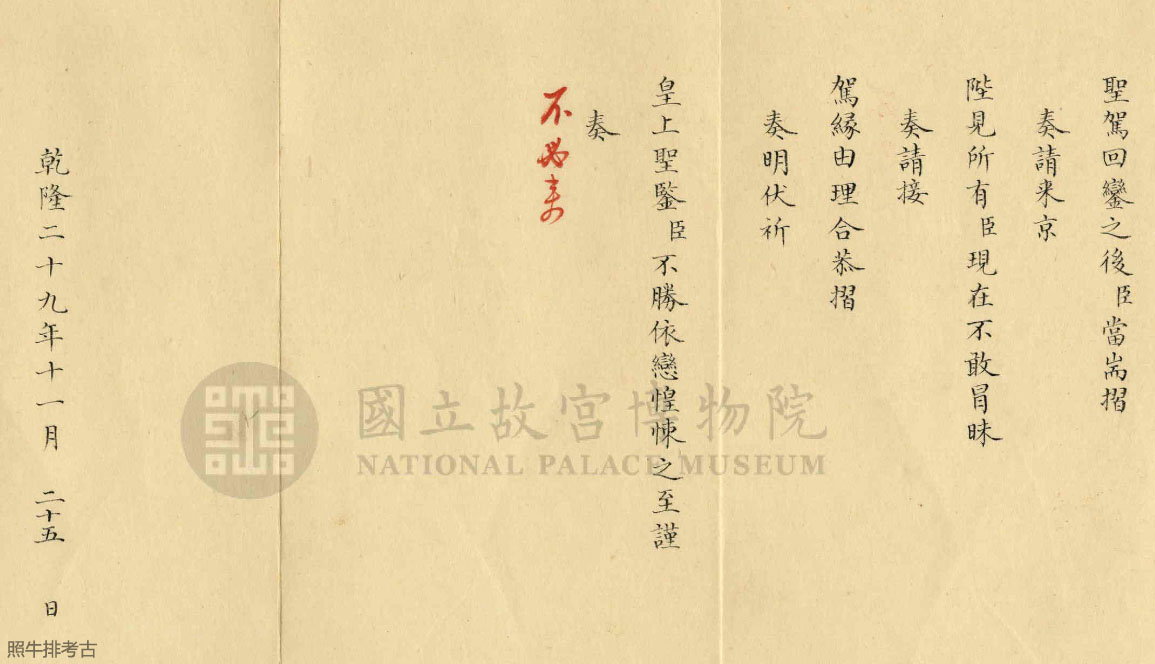 聖駕回鑾之後臣當耑摺
奏請来京
陛見所有臣現在不敢冒昧
奏請接
駕緣由理合恭摺
奏明伏祈
皇上聖鑒臣不勝依戀惶悚之至謹
奏
不必来
乾隆二十九年十一月 二十五 日
國立故宮博物院
NATIONAL PALACE MUSEUM
照牛排考古